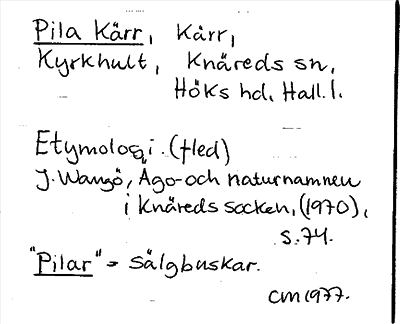 Pila Kärr, Kärr,
Kyrkhult, Knäreds sn,
Höks hd, Hall. l.
Etymologi. (fled)
J. Wangö, Ago- och naturnamnen
i Knäreds socken, (1970),
s. 74.
"Pilar" = sälgbuskar.
CM 1977.